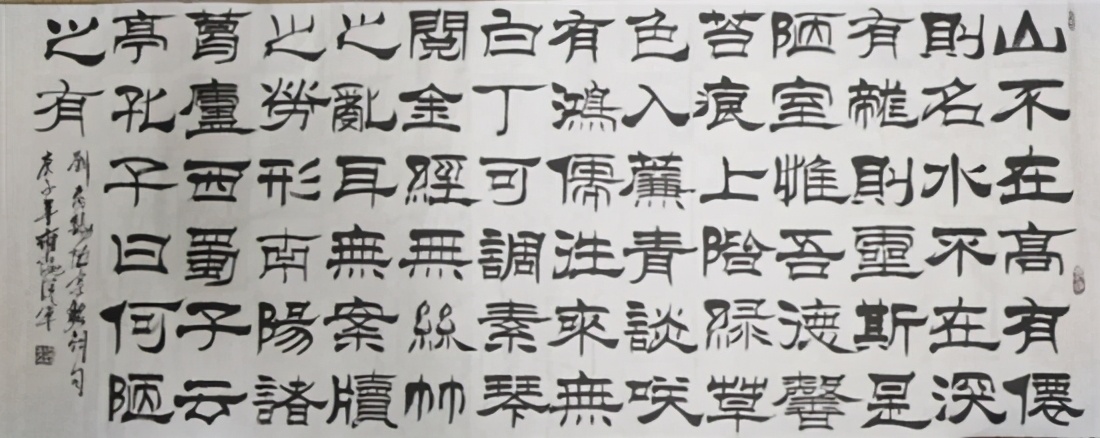 山不在高有僊
則名水不在深
有龍則靈斯是
陋室惟吾德馨
苔痕上階綠草
色入簾青談咲
有鴻儒往來無
白丁可調素琴
閱金經無絲竹
之亂耳無案牘
之勞形南陽諸
葛廬西蜀子云
亭孔子曰何陋
之有
劉禹錫陋室銘詞句
庚子年